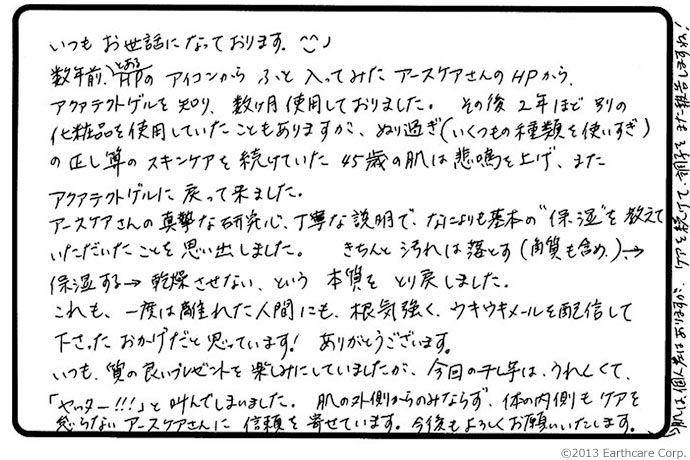 いつも お世話になっております。
数年前、とあるHPの アイコンから ふと 入ってみた アースケアさんの HPから、
アクアテクトゲルを知り、数ヶ月使用しておりました。 その後 2年ほど 別の
化粧品を使用していたこともありますが、ぬり過ぎ(いくつもの種類を使いすぎ)
の スキンケアを 続けていた 45歳の肌は 悲鳴を上げ、また
アクアテクトゲルに 戻って来ました。
アースケアさんの 真摯な研究心、丁寧な説明で、なによりも基本の“保湿”を教えて
いただいたことを 思い出しました。 きちんと 汚れは落とす(角質も含め)→
保湿する→乾燥させない、という 本質を とり戻しました。
これも、一度は離れた人間にも、根気強く、ウキウキメールを配信して
下さった おかげだと 思っています! ありがとうございます。
いつも、質の良いプレゼントを楽しみにしていましたが、今回の は、うれしくて、
「ヤッター!!!」と 叫んでしまいました。 肌の外側からのみならず、体の内側も ケアを
怠らない アースケアさんに 信頼を寄せています。今後もよろしくお願いいたします。
©2013 Earthcare Corp.